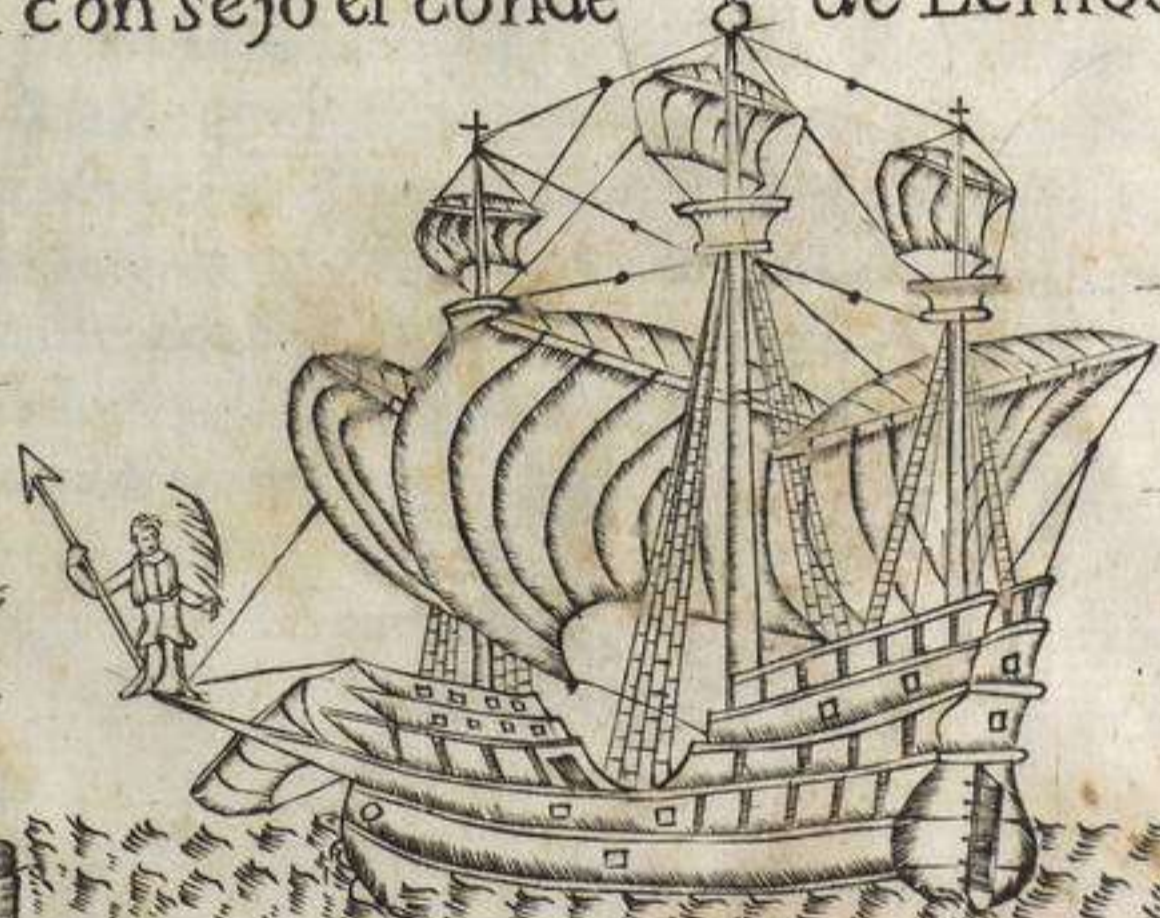 con sejo el conde de Lemos